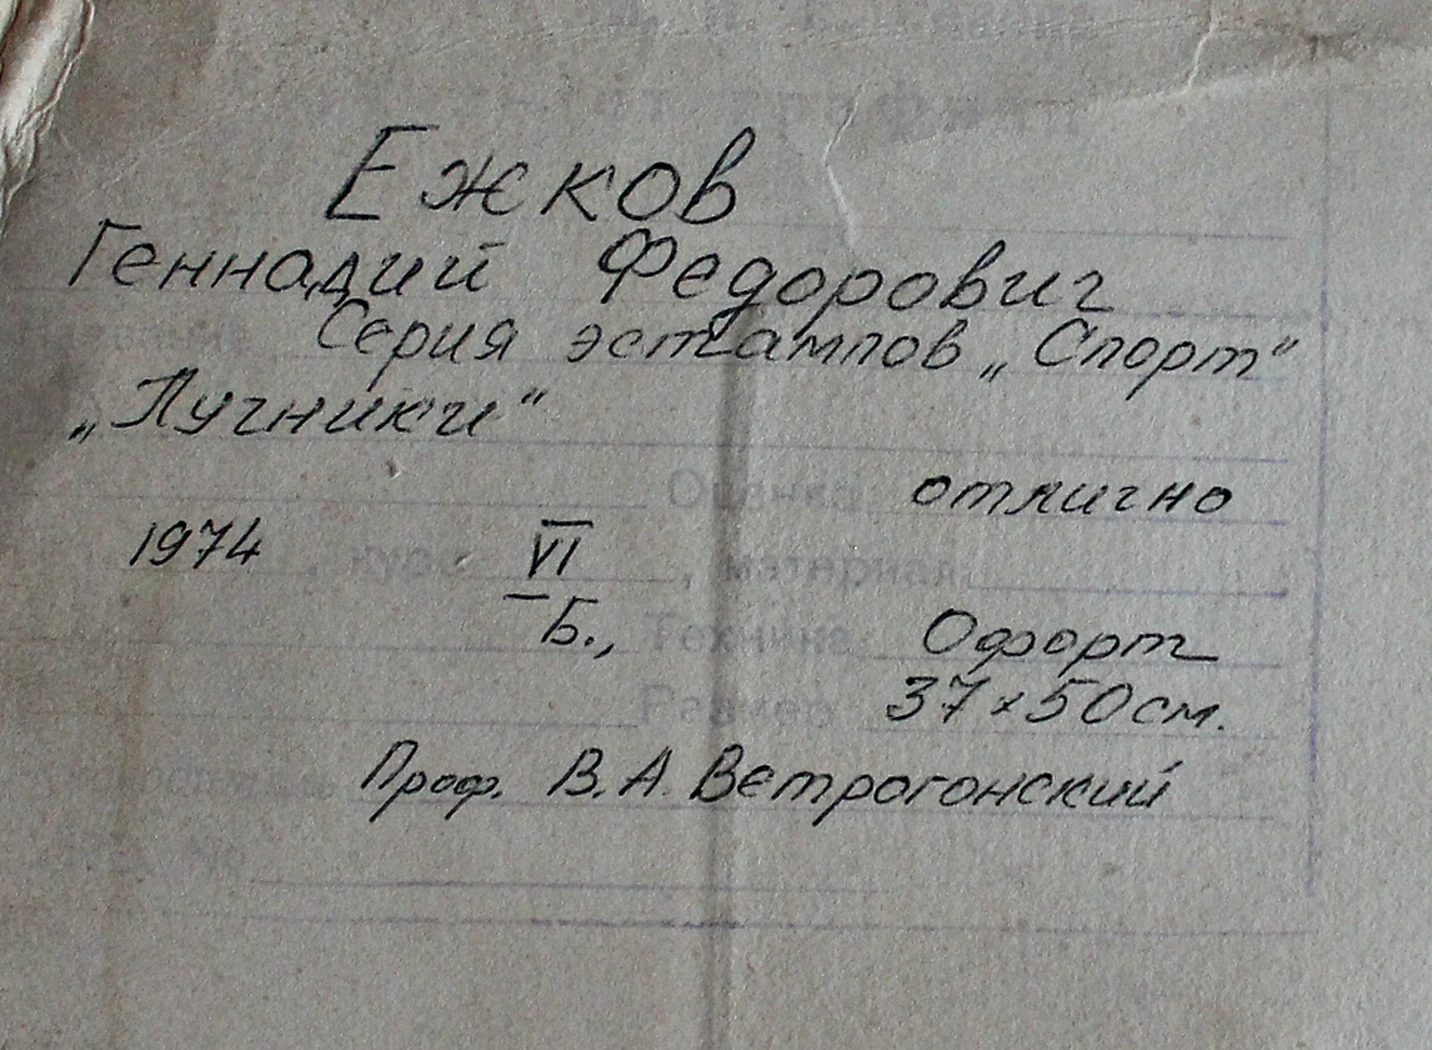 Ежков
Геннадий Федорович
Серия эстампов „Спорт“
„Лучники“
Оценка отлично
1974, курс VI, материал
Б., Техника Офорт
Размер 37×50 см.
Проф. В. А. Ветрогонский